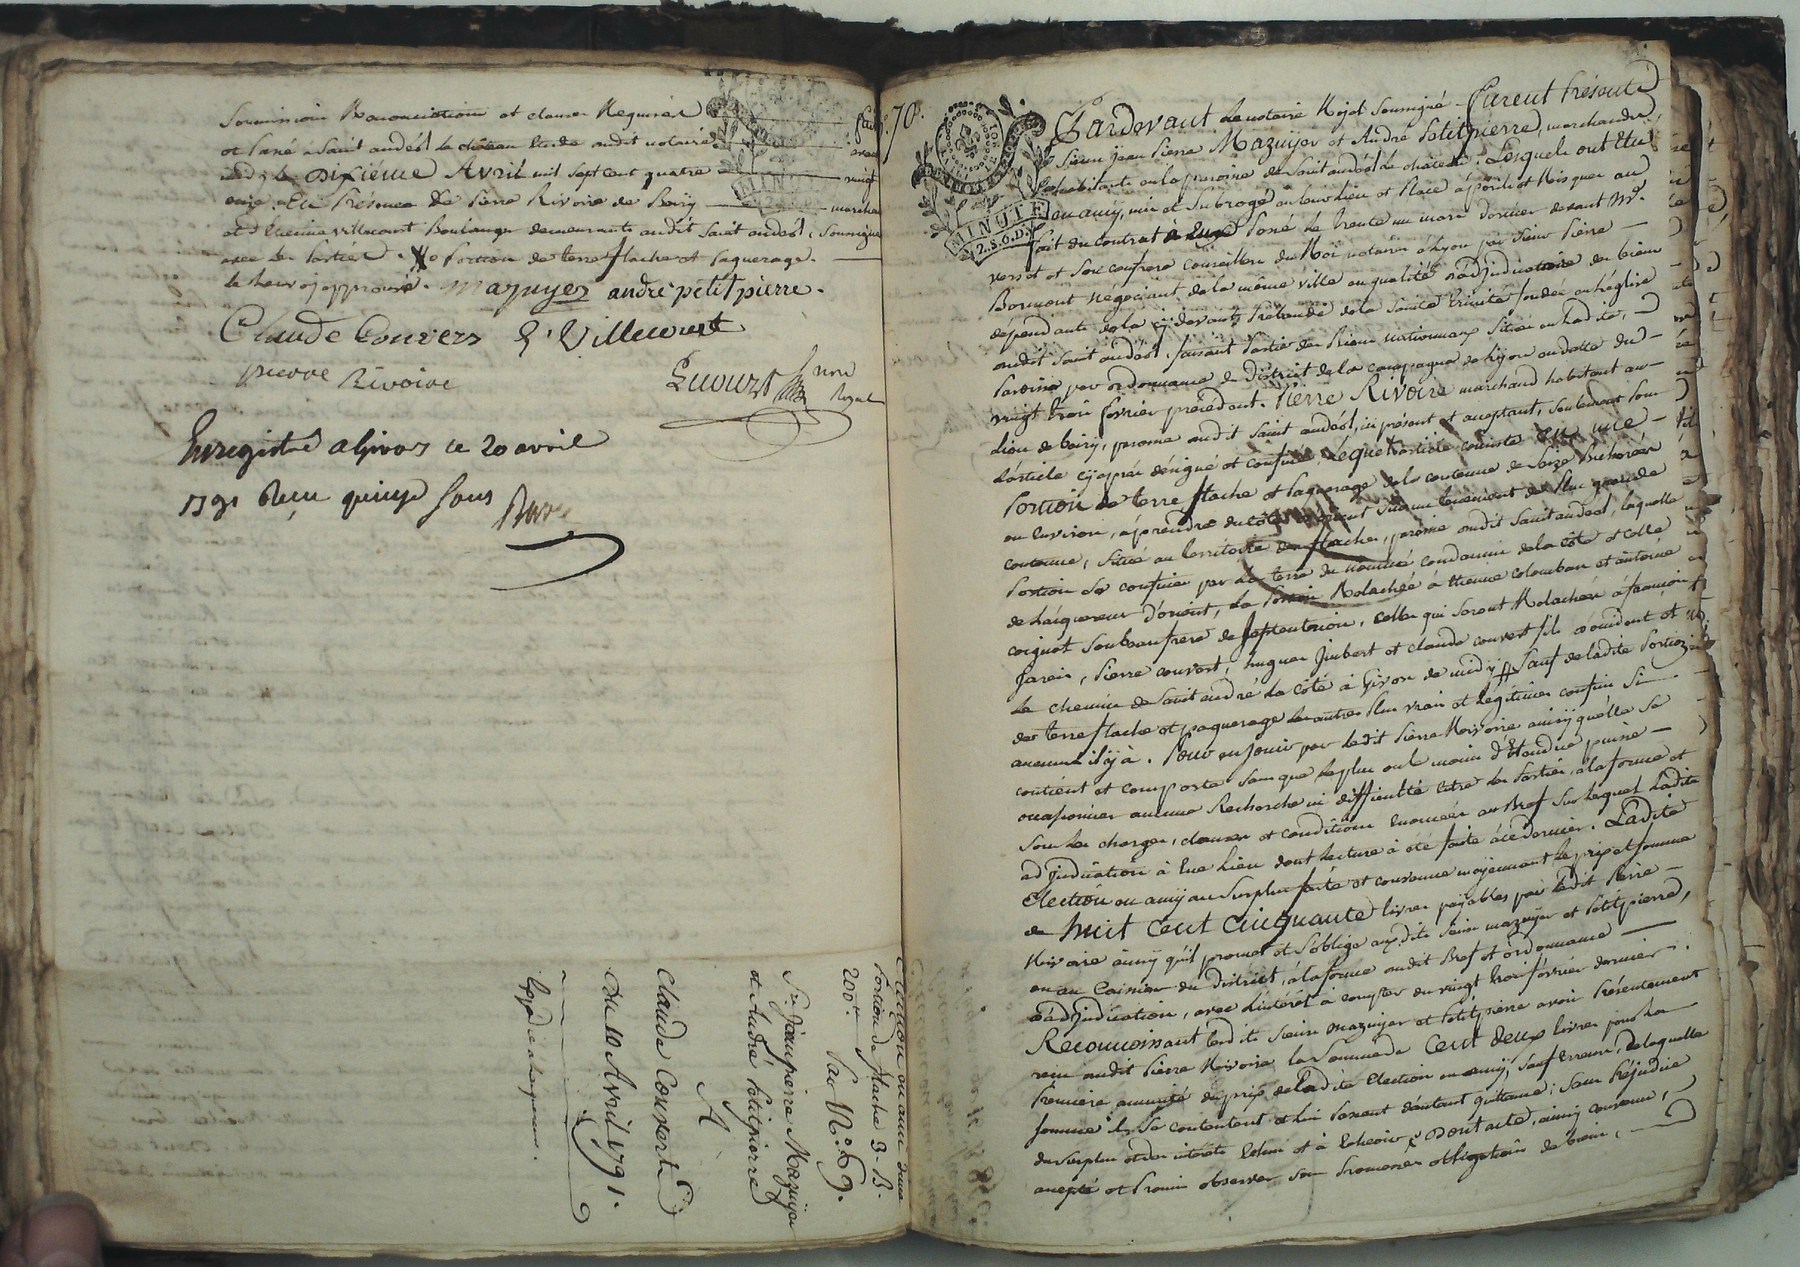 Soumission Renonciation et clauses Requises fait
et passé à Saint andéol le château Etude dudit notaire avant
midy le Dixième Avril mil sept cent quatre vingt
onze. En Présence de Pierre Rivoire de Boiry marchand
et Etienne villecourt Boulanger demeurants audit Saint andéol, Soussignés
avec les parties. portion de terre flache et paquerage.
le heu approuvé. mazuyer andré petitpierre.
Claude Couvers E. Villecourt
pierre Rivoire
Royal
Enregistré a Givors le 20 avril
1791 Reçu quinze sous
Election en amie d'une
Portion de flache 3. B.
200.
Par Sr.
Sr. Jean pierre Mazuyer
et André Petitpierre
A
Claude Couvert
Du 10 Avril 1791.
70.
MINUTE
2. S. 6. D.
Pardevant Le notaire Royal Soussigné Furent Présents
Sieurs Jean Pierre Mazuyer et André Petitpierre, marchands,
habitants en la paroisse de Saint andéol le château. Lesquels ont Elu
en amy, mis et Subrogé en leur lieu et Place à perils et Risques au
fait du contrat passé le trente un mars dernier devant Mr.
et Son confrere Conseillers du Roi notaires à Lyon par Sieur Pierre
Bormont négociant de la même ville en qualité d'adjudicataire des biens
dependants de la cy devant Prébende de la Sainte trinité fondée en L'église
audit Saint andéol, faisant Partie des Biens nationnaux Situés en Ladite
Paroisse par ordonnance du District de la campagne de Lyon en datte du
vingt trois fevrier précédent. Pierre Rivoire marchand habitant au
lieu de boiry, paroisse audit Saint andéol, icy présent et acceptant, Seulement pour
L'article cy après désigné et confiné, Lequel article consiste En une
Portion de terre flache et Paquerage de la contenue de Seize Bicherées
ou Environ, à prendre du côté Sur un tenement de Plus grande
contenue, Situé au territoire des flaches, paroisse audit Saint andéol, laquelle
Portion Se confine par La terre du nommé condamin de la côte et celle
de Laiguereur d'orient, La Portion Relachée à Etienne colomban et antoine
coignet Son beaufrere de Septentrion, Celles qui Seront Relachées à françois
Jarein, Pierre couvert, hugues Jinbert et claude couvert fils d'occident et
Le chemin de Saint andré La côte à Givors de midy. Sauf de ladite portion
de terre flache et paquerage Les autres Plus vrais et Légitimes confins Si
aucuns il y à. Pour en Jouir par Ledit Pierre Rivoire ainsy qu'elle Se
contient et comporte Sans que Le plus ou le moins d'Etendue puisse
occasionner aucune Recherche ni difficulté Entre les Parties, à la forme et
Sous les charges, clauses et conditions Enoncées au Bref Sur lequel Ladite
adjudication à Eue Lieu dont Lecture à été faite à ce dernier. Ladite
Election en amy au Surplus faite et convenue moyennant Le prix et Somme
de huit Cent Cinquante livres payables par Ledit Pierre
Rivoire ainsy qu'il promet et S'oblige auxdits Sieurs mazuyer et Petitpierre,
ou au Caissier du District, à la forme audit Bref et ordonnance
d'adjudication, avec L'intérêt à compter du vingt trois février dernier.
Reconnoissant Lesdits Sieurs mazuyer et Petitpierre avoir Présentement
reçu audit Pierre Rivoire la Somme de Cent deux livres pour La
Premiere annuité du prix de Ladite Election en amy, Sauf Erreur, de laquelle
Somme ils Se contentent et lui Passent d'autant quittance, Sans Préjudice
du Surplus et des interêts Echus et à Echeoir. Dont acte, ainsy convenu,
accepté et Promis observer Sous Promesses obligations de biens,